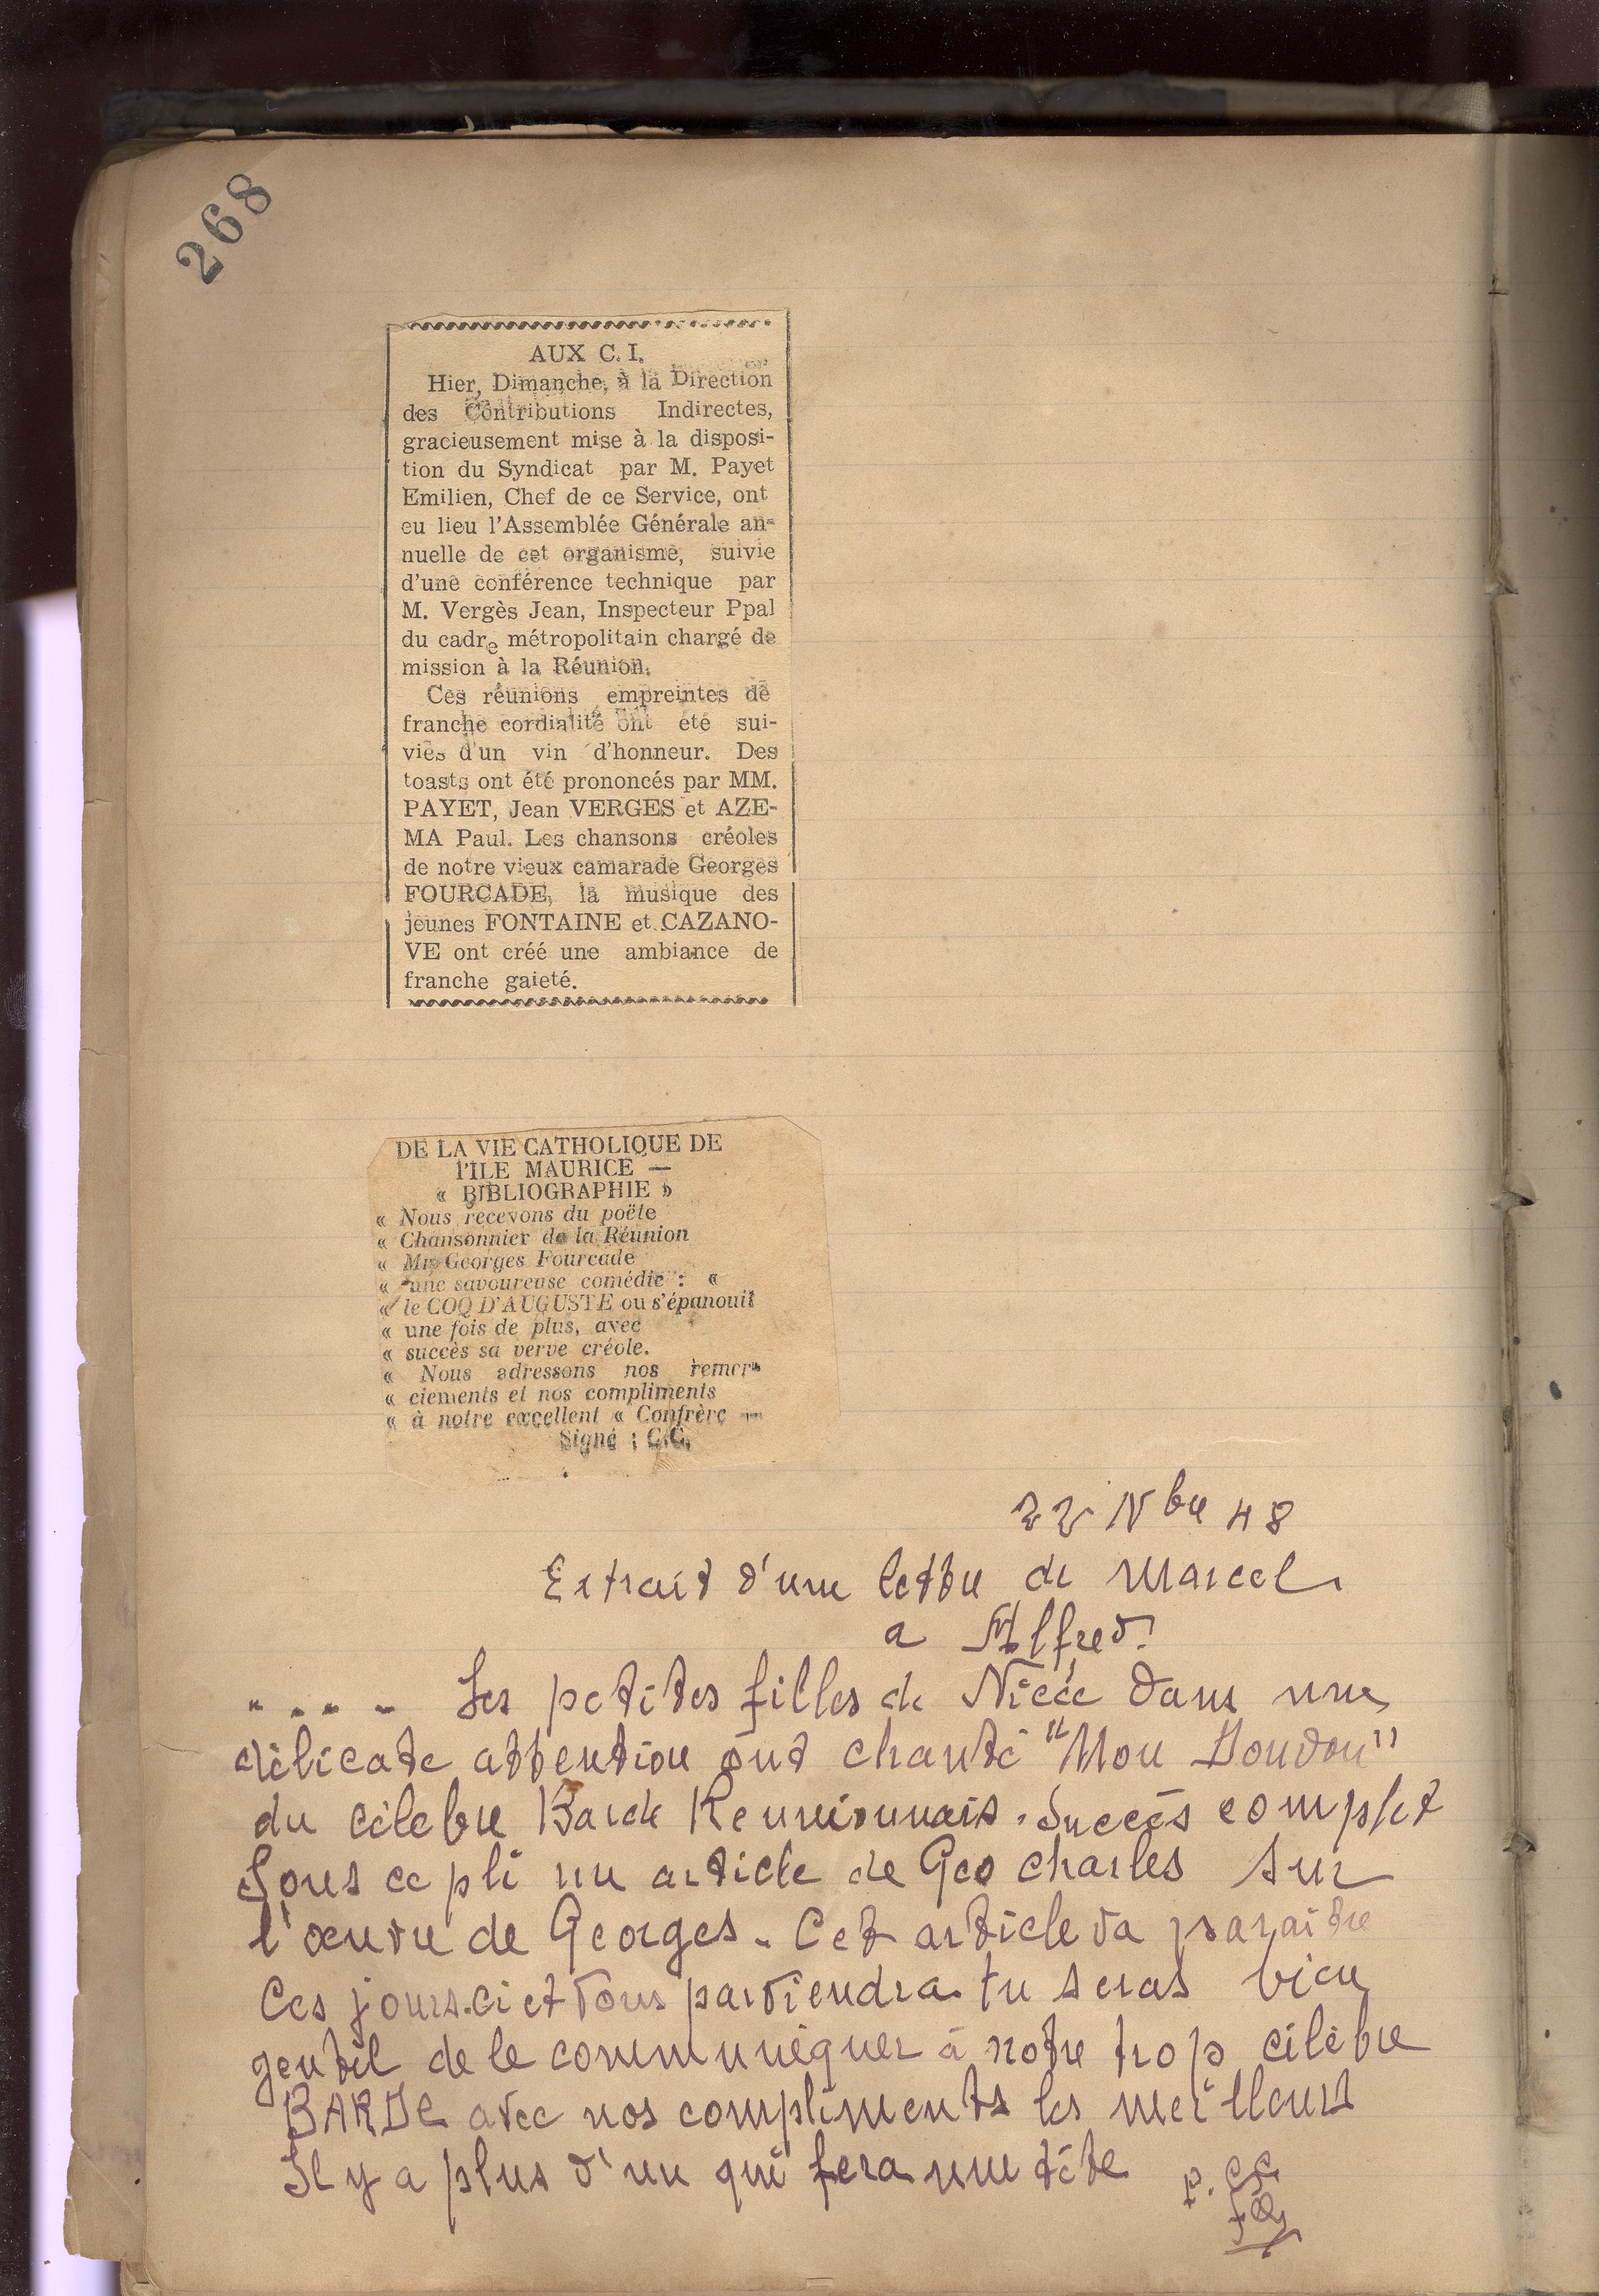 268
AUX C. I.
Hier, Dimanche, à la Direction
des Contributions Indirectes,
gracieusement mise à la disposi-
tion du Syndicat par M. Payet
Emilien, Chef de ce Service, ont
eu lieu l'Assemblée Générale an-
nuelle de cet organisme, suivie
d'une conférence technique par
M. Vergès Jean, Inspecteur Ppal
du cadre métropolitain chargé de
mission à la Réunion.
Ces réunions empreintes de
franche cordialité ont été sui-
vies d'un vin d'honneur. Des
toasts ont été prononcés par MM.
PAYET, Jean VERGES et AZE-
MA Paul. Les chansons créoles
de notre vieux camarade Georges
FOURCADE, la musique des
jeunes FONTAINE et CAZANO-
VE ont créé une ambiance de
franche gaieté.
DE LA VIE CATHOLIQUE DE
l'ILE MAURICE —
« BIBLIOGRAPHIE »
« Nous recevons du poëte
« Chansonnier de la Réunion
« Mr Georges Fourcade
« une savoureuse comédie : «
« le COQ D'AUGUSTE ou s'épanouit
« une fois de plus, avec
« succès sa verve créole.
« Nous adressons nos remer-
« ciements et nos compliments
« à notre excellent « Confrère —
Signé : C.C.
22 Nbre 48
Extrait d'une lettre de Marcel
a Alfred.
.... Les petites filles de Nicée dans une
délicate attention ont chanté "Mon Doudou"
du célèbre Barde Reunionnais. Succès complet
Sous ce pli un article de Geo Charles sur
l'œuvre de Georges. Cet article va paraitre
Ces jours.ci et vous parviendra. tu seras bien
gentil de le communiquer à notre trop célèbre
BARDE avec nos compliments les meilleurs
Il y a plus d'un qui fera une tête
p. cc.